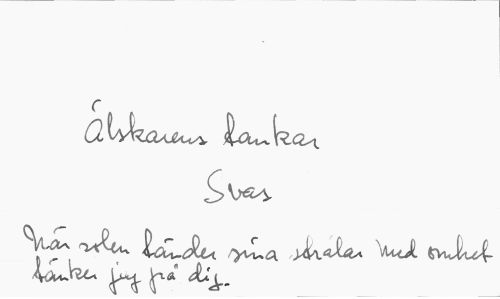 Älskarens tankar
Svas
När solen tänder sina strålar med ömhet
tänker jag på dig.